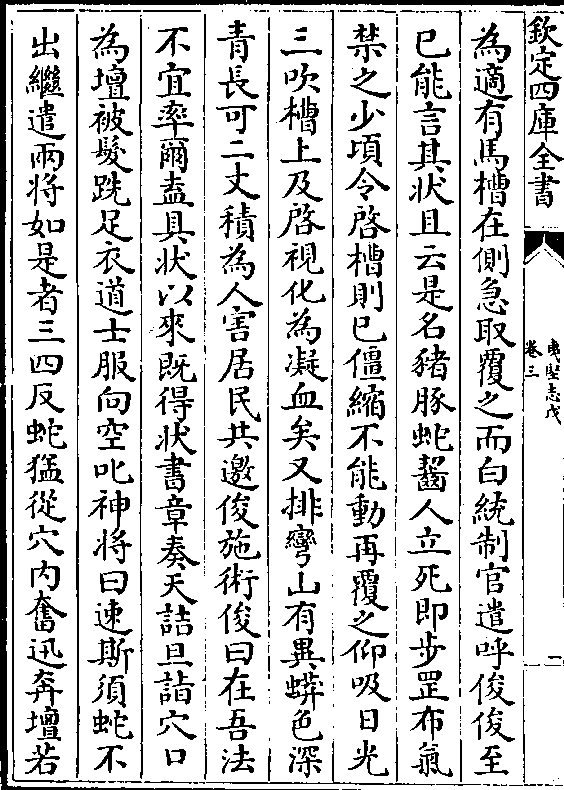 欽定四庫全書
夷堅志戊
卷三
二
為適有馬槽在側急取覆之而白統制官遣呼俊俊至
已能言其状且云是名豬豚蛇齧人立死即步罡布氣
禁之少頃令啓槽則已僵縮不能動再覆之仰吸日光
三吹槽上及啓視化為凝血矣又排彎山有異蟒色深
青長可二丈積為人害居民共邀俊施術俊曰在吾法
不宜率爾盍具状以來既得状書章奏天詰旦詣穴口
為壇被髮跣足衣道士服向空叱神将曰速斯須蛇不
出繼遣兩将如是者三四反蛇猛從穴内奮迅奔壇若